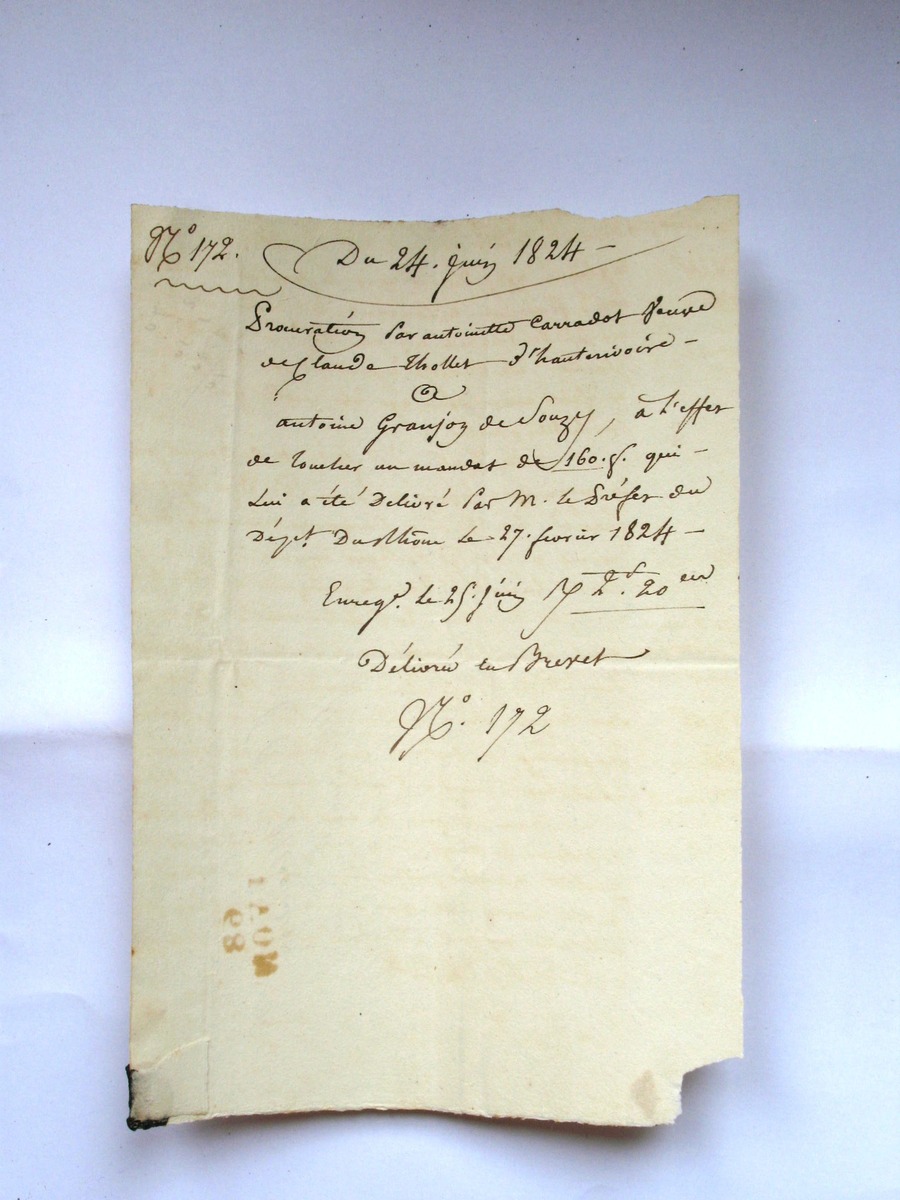 N° 172.
Du 24. juin 1824 –
Procuration par antoinette Carradot Veuve
de Claude Thollet d'hauterivoire –
a
antoine Granjon de Souzy, à l'effet
de toucher un mandat de 160.f. qui –
lui a été Delivré par M. le Préfet du
Dépt. Du Rhône le 27. fevrier 1824 –
Enregé. le 25. juin 2f. 20 ces
Délivré en Brevet
N°. 172
68